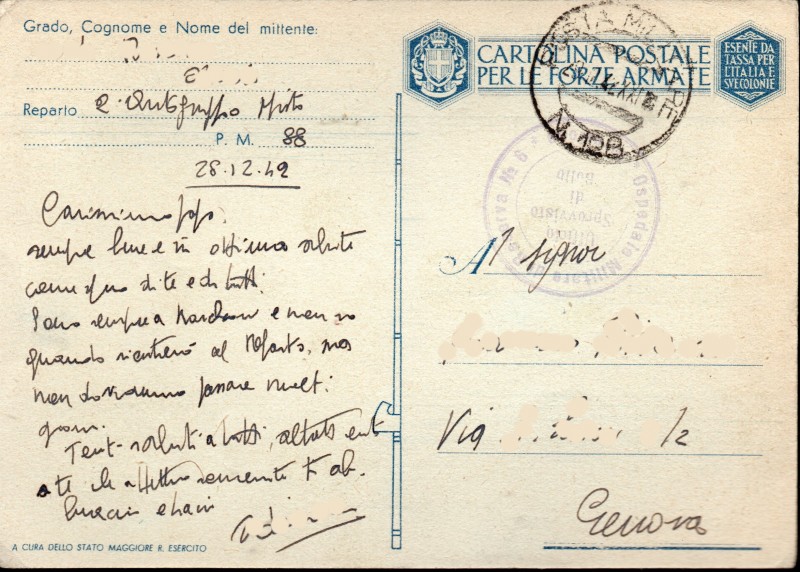 Grado, Cognome e Nome del mittente:
Reparto 2° Autogruppo Misto
P. M. 88
28.12.42
Carissimo Papà
sempre bene e in ottima salute
come spero di te e di tutti.
Sono sempre a e non so
quando rientrerò al Reparto, ma
non dovranno passare molti
giorni.
Tanti saluti a tutti,
a te che affettuosamente ti ab-
braccio e baci
A CURA DELLO STATO MAGGIORE R. ESERCITO
CARTOLINA POSTALE
PER LE FORZE ARMATE
ESENTE DA
TASSA PER
L'ITALIA E
SVE COLONIE
POSTA MILITARE
N. 128
Ospedale Militare di Riserva No 6
Ufficio
Sprovvisto
di
Bollo
Al Signor
Via /2
Genova